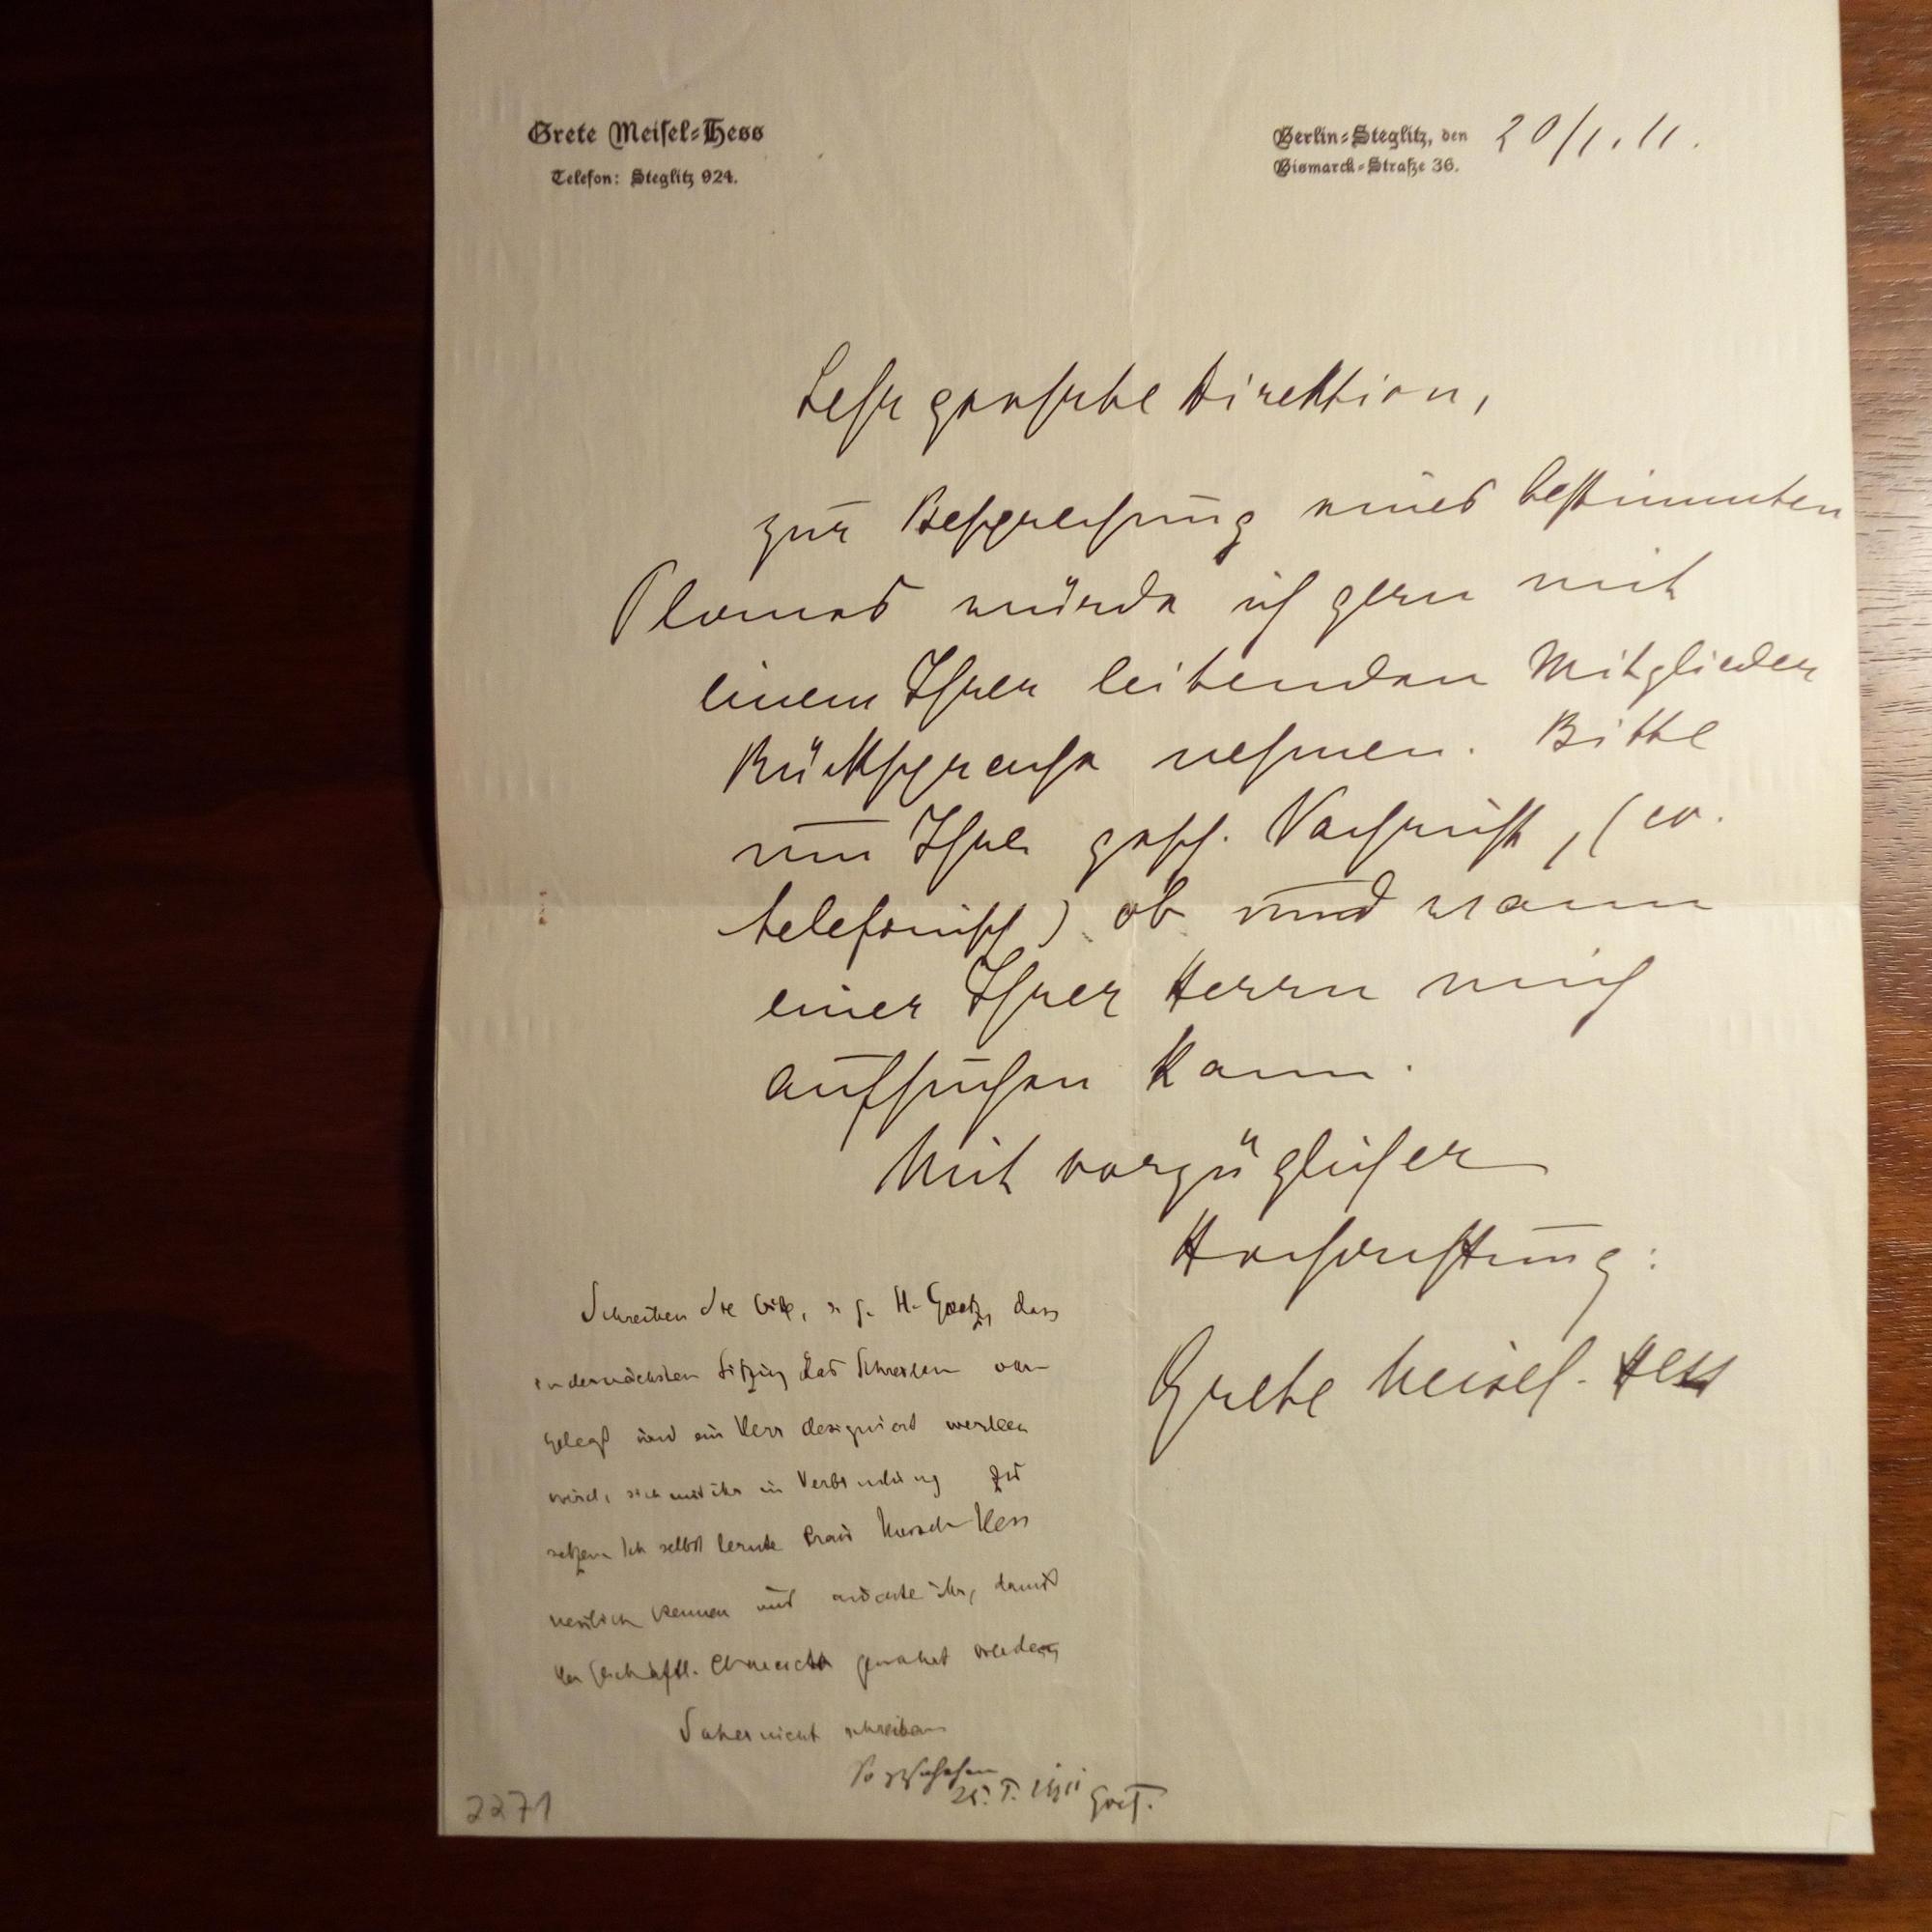 Grete Meisel-Hess
Telefon: Steglitz 924.
Berlin-Steglitz, den 20/1.11.
Bismarck-Straße 36.
Sehr geehrte Direktion,
zur Besprechung eines bestimmten
Planes würde ich gern mit
einem Ihrer leitenden Mitglieder
Rücksprache nehmen. Bitte
um Ihre gefl. Nachricht, (ev.
telefonisch) ob und wann
einer Ihrer Herrn mich
aufsuchen kann.
Mit vorzüglicher
Hochachtung:
Grete Meisel-Hess
Schreiben Sie bitte, s. g. H. Goetz, dass
in der nächsten Sitzung das Schreiben vor-
gelegt und ein Herr designiert werden
wird, sich mit ihr in Verbindung zu
setzen. Ich selbst lernte Frau Hess
neulich kennen und möchte ihr, damit
der geschäftl. gewahrt
daher nicht schreiben
So geschehen
25. I. 1911
2271